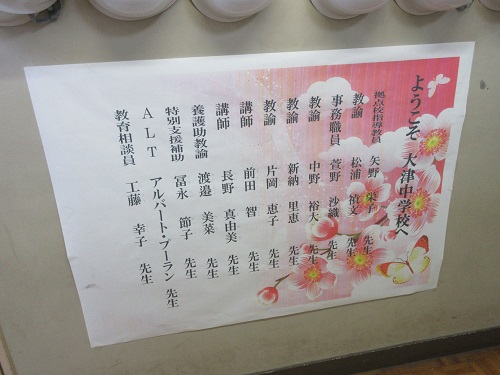 ようこそ 大津中学校へ
拠点校指導教員 矢野 栄子 先生
教諭 松浦 慎文 先生
事務職員 萱野 沙織 先生
教諭 中野 裕大 先生
教諭 新納 里恵 先生
教諭 片岡 恵子 先生
講師 前田 智 先生
講師 長野 真由美 先生
養護助教諭 渡邉 美菜 先生
特別支援補助 冨永 節子 先生
ALT アルバート・ブーラン 先生
教育相談員 工藤 幸子 先生